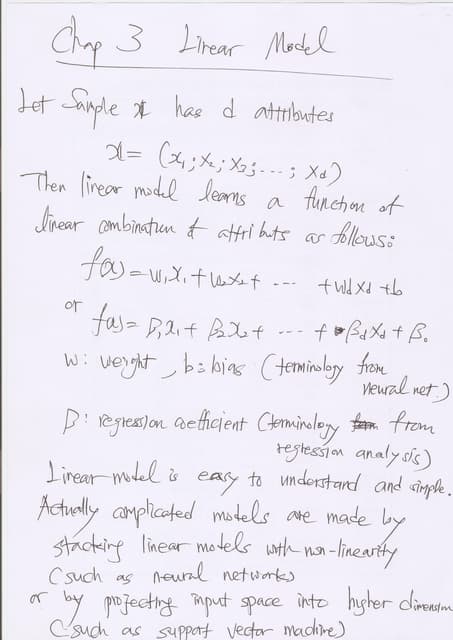 Chap 3 Linear Model
Let Sample x has d attributes
x = (x₁; x₂; x₃; ...; xd)
Then linear model learns a function of
linear combination of attributs as follows:
f(x) = w₁x₁ + w₂x₂ + ... + wdxd + b
or
f(x) = β₁x₁ + β₂x₂ + ... + βdxd + β₀
w: weight, b: bias (terminology from
neural net.)
β: regression coefficient (terminology from
regression analysis)
Linear model is easy to understand and simple.
Actually complicated models are made by
stacking linear models with non-linearity
(such as neural networks)
or by projecting input space into higher dimension
(such as support vector machine)